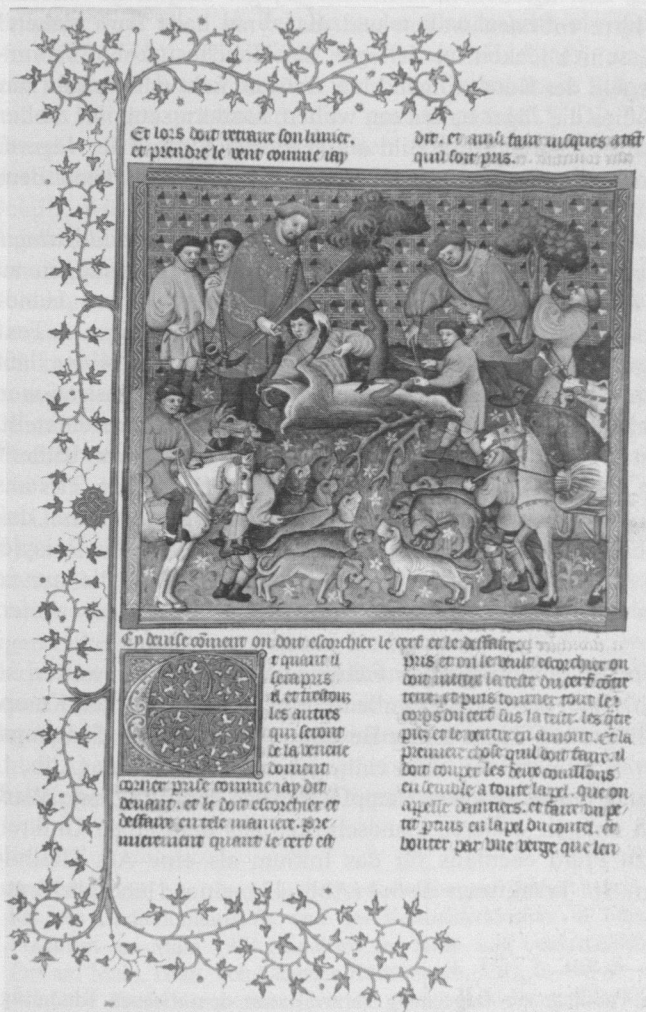 Et lors doit retraire son limier.
et prendre le vent comme iay
dit. et ainsi faire iusques atant
quil soit pris.
Cy deuise cõment on doit escorchier le cerf et le deffaire.
Et quant il
sera pris
il et trestouz
les autres
qui seront
de la venerie
doiuent
corner prise comme iay dit
deuant. et le doit escorchier et
deffaire en tele maniere. Pre
mierement quant le cerf est
pris et on le veult escorchier on
doit mettre la teste du cerf côtre
terre. et puis tourner tout le
corps du cerf sus la teste. les .iiij.
piez et le ventre en amont. Et la
premiere chose quil doit faire. il
doit couper les deux couillons
ensemble a toute la pel. que on
appelle daintiers. et faire un pe
tit ptuis en la pel du coutel. et
bouter par vne verge que len